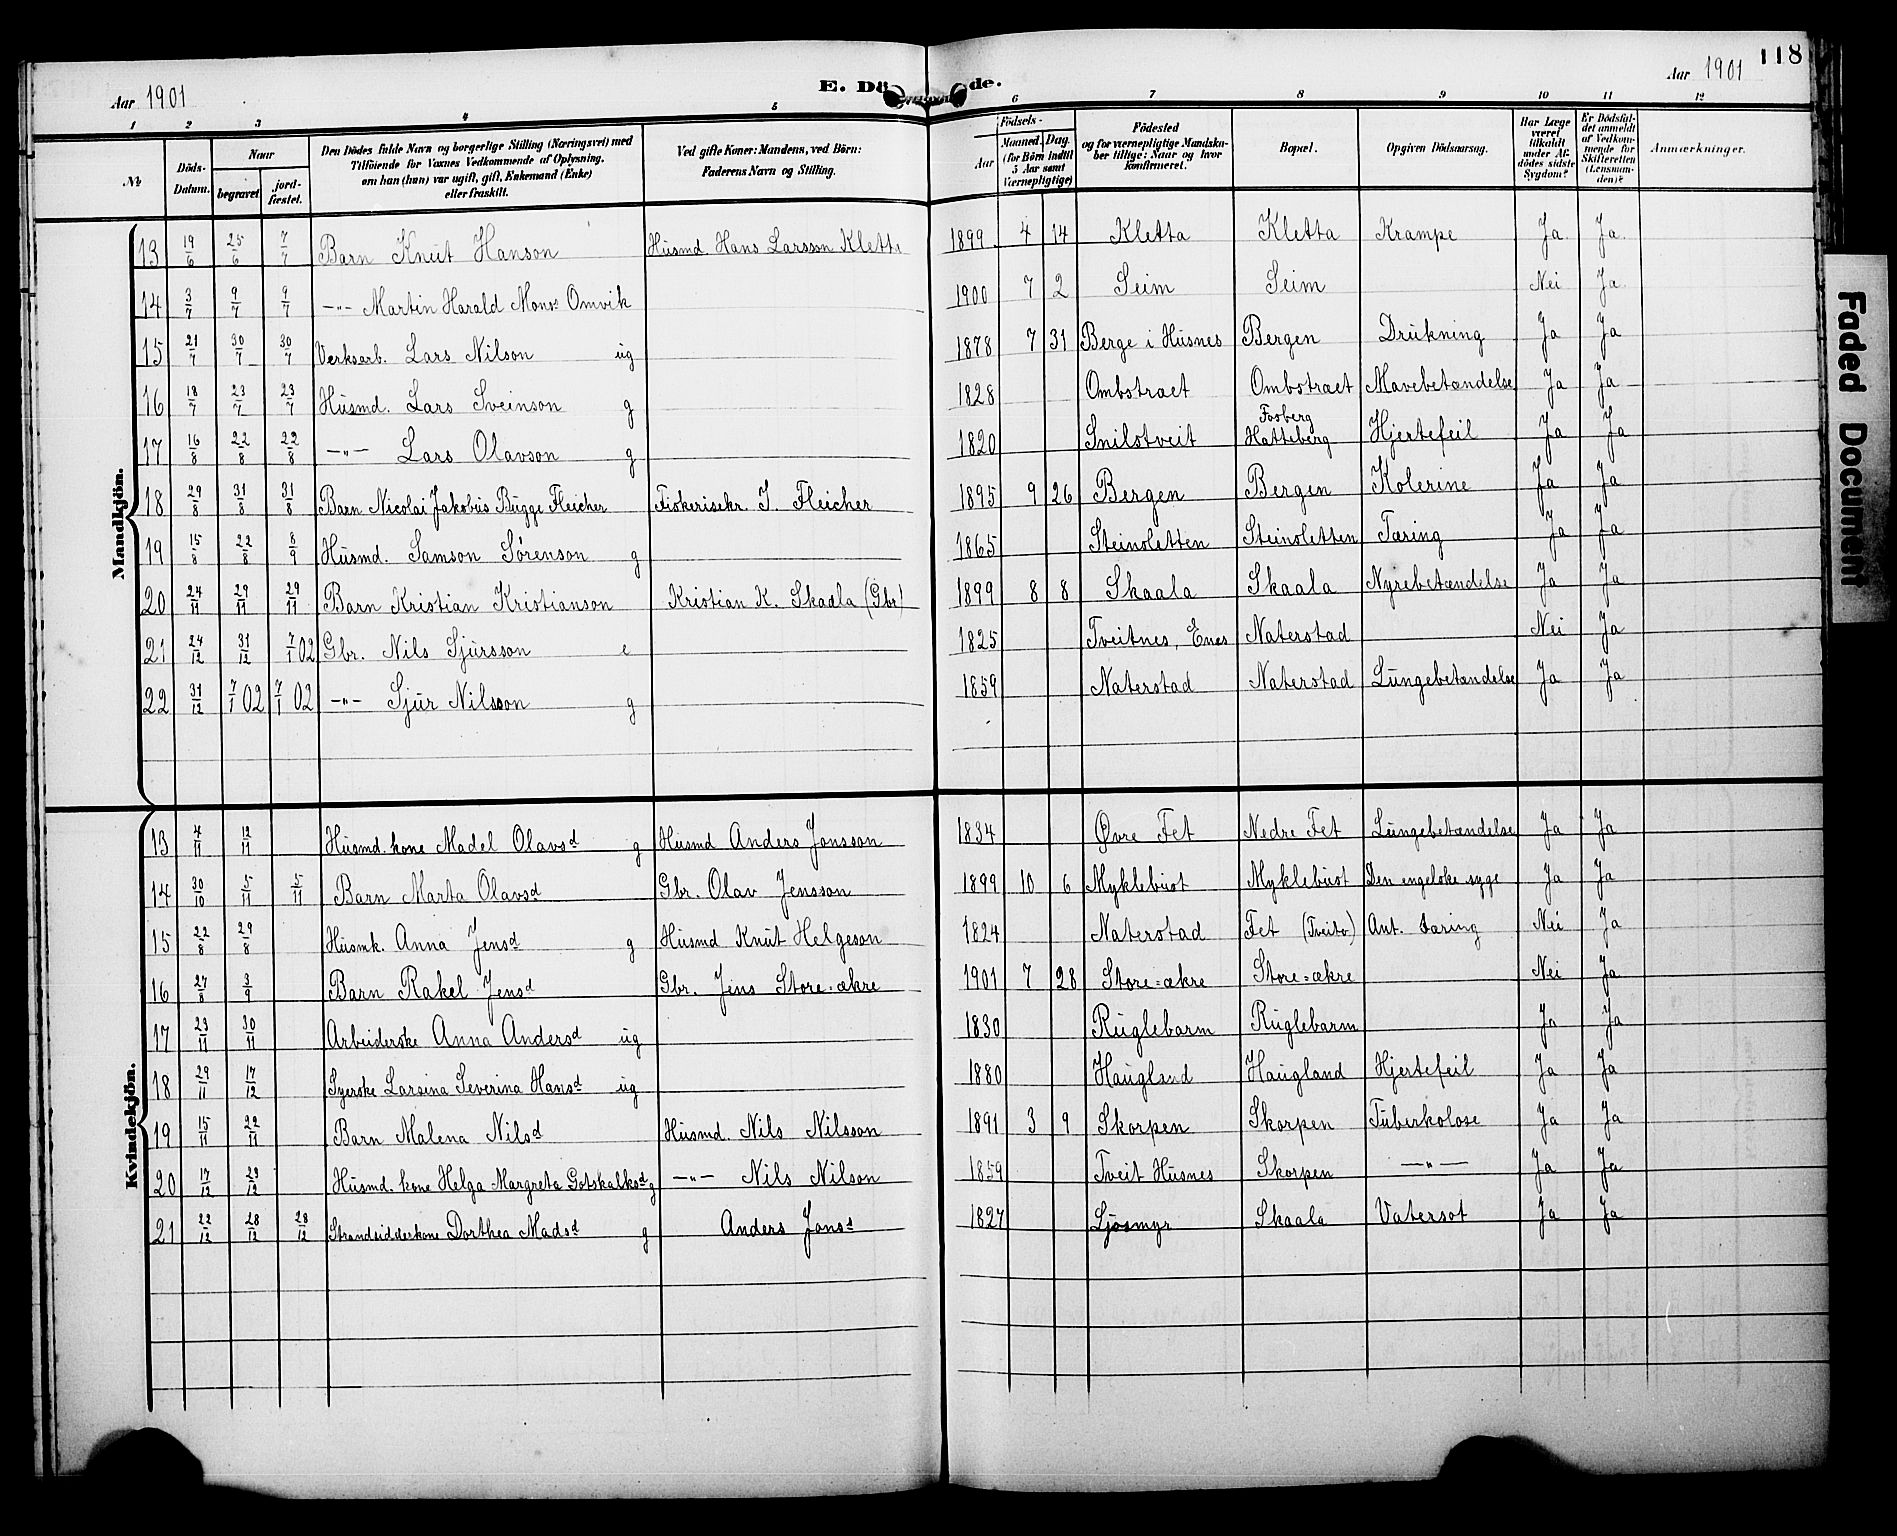 118
Aar 1901 E. Dö de. Aar 1901
1 2 3 4 5 6 7 8 9 10 11 12
№ Döds-Datum. Naar begravet jordfæstet. Den Dödes fulde Navn og borgerlige Stilling (Næringsvei) med Tilföiende for Voxnes Vedkommende af Oplysning, om han (hun) var ugift, gift, Enkemand (Enke) eller fraskilt. Ved gifte Koner: Mandens, ved Börn: Faderens Navn og Stilling. Födsels- Aar Maaned Dag. (for Börn indtil 5 Aar samt Værnepligtige) Födested og for værnepligtige Mandskaber tillige: Naar og hvor konfirmeret. Bopæl. Opgiven Dödsaarsag. Har Læge været tilkaldt under Afdödes sidste Sygdom? Er Dödsfaldet anmeldt af Vedkommende for Skifteretten (Lensmanden)? Anmærkninger.
Mandkjön.
13 19/6 25/6 7/7 Barn Knut Hanson Husmd. Hans Larsson Kletta 1899 4 14 Kletta Kletta Krampe Ja Ja
14 3/7 9/7 9/7 -"- Martin Harald Mons. Omvik 1900 7 2 Seim Seim Nei Ja
15 21/7 30/7 30/7 Verksarb. Lars Nilson ug 1878 7 31 Berge i Husnes Bergen Drukning Ja Ja
16 18/7 23/7 23/7 Husmd. Lars Sveinson g 1828 Ombstraet Ombstraet Mavebetændelse Ja Ja
17 16/8 22/8 22/8 -"- Lars Olavson g 1820 Snilstveit Fosberg Hatteberg Hjertefeil Ja Ja
18 29/8 31/8 31/8 Barn Nicolai Jakobus Bugge Fleicher Fiskerisekr. J. Fleicher 1895 9 26 Bergen Bergen Kolerine Ja Ja
19 15/8 22/8 8/9 Husmd. Samson Sörenson g 1865 Steinsletten Steinsletten Tæring Ja Ja
20 24/11 29/11 29/11 Barn Kristian Kristianson Kristian K. Skaala (Gbr) 1899 8 8 Skaala Skaala Nyrebetændelse Ja Ja
21 24/12 31/12 7/1 02 Gbr. Nils Sjursson e 1825 Tveitnes, Enes Naterstad Nei Ja
22 31/12 7/1 02 7/1 02 -"- Sjur Nilsson g 1859 Naterstad Naterstad Lungebetændelse Ja Ja
Kvindekjön.
13 4/11 12/11 Husmd. kone Madel Olavsd g Husmd Anders Jonsson 1834 Øvre Fet Nedre Fet Lungebetændelse Ja Ja
14 30/10 5/11 5/11 Barn Marta Olavsd Gbr. Olav Jensson 1899 10 6 Myklebust Myklebust Den engelske syge Ja Ja
15 22/8 29/8 Husmk. Anna Jensd g Husmd Knut Helgeson 1824 Naterstad Fet (Tveito) Ant. tæring Nei Ja
16 27/8 3/9 Barn Rakel Jensd Gbr. Jens Store-ækre 1901 7 28 Store-ækre Store-ækre Nei Ja
17 23/11 30/11 Arbeiderske Anna Andersd ug 1830 Ruglebarm Ruglebarm Ja Ja
18 29/11 17/12 Syerske Larsina Severina Hansd ug 1880 Haugland Haugland Hjertefeil Ja Ja
19 15/11 22/11 Barn Malena Nilsd Husmd. Nils Nilsson 1891 3 9 Skorpen Skorpen Tuberkolose Ja Ja
20 17/12 23/12 Husmd. kone Helga Margreta Gotskalksd g -"- Nils Nilson 1859 Tveit Husnes Skorpen -"- Ja Ja
21 22/12 28/12 28/12 Strandsidderkone Dorthea Madsd g Anders Jonss 1827 Ljosmyr Skaala Vatersot Ja Ja
Faded Document